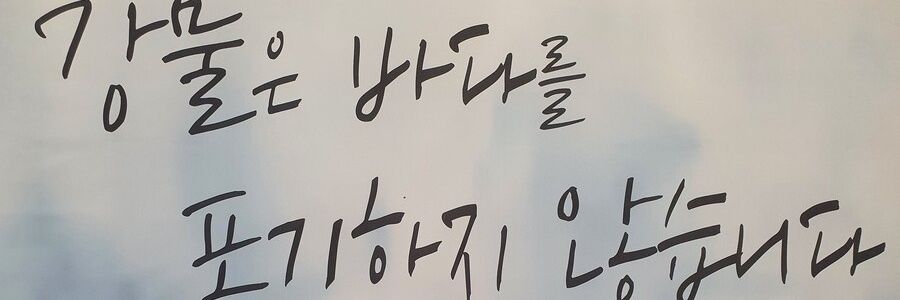 강물은 바다를
포기하지 않습니다